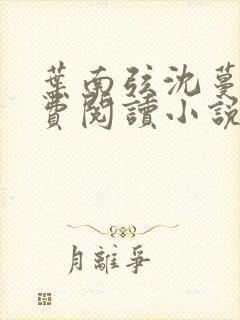 葉南弦沈蔓
費閱讀小說
月離爭